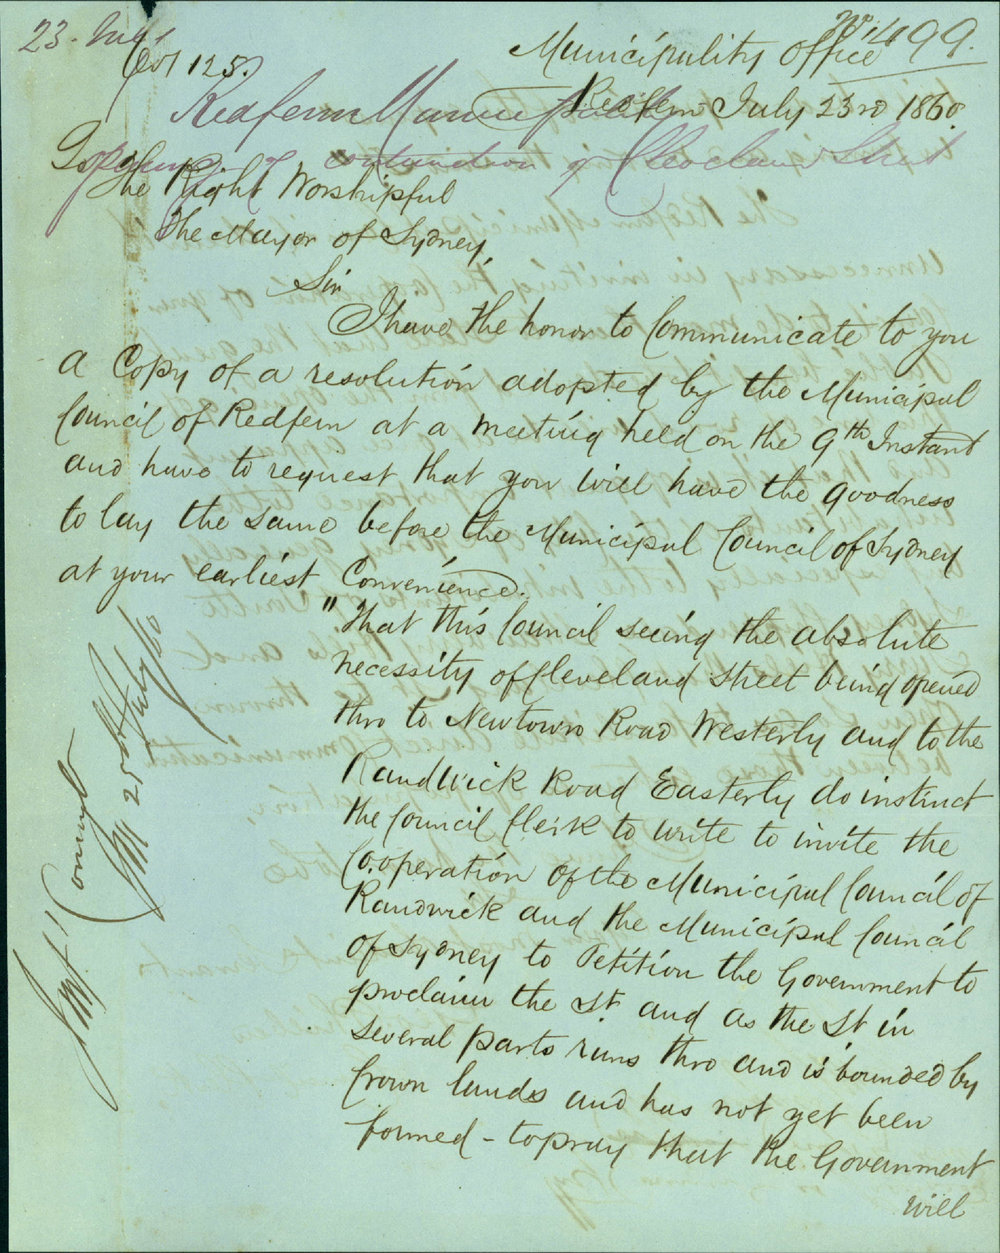 No. 499.
23. July
Vol 125.
Municipality Office
Redfern July 23rd 1860
Redfern Municipality
opening of continuation of Cleveland Street
To
The Right Worshipful
The Mayor of Sydney,
Sir
I have the honor to Communicate to you
a Copy of a resolution adopted by the Municipal
Council of Redfern at a meeting held on the 9th Instant
and have to request that you will have the goodness
to lay the same before the Municipal Council of Sydney
at your earliest Convenience.
"That this Council seeing the absolute
necessity of Cleveland Street being opened
thro to Newtown Road Westerly and to the
Randwick Road Easterly do instruct
the Council Clerk to write to invite the
Cooperation of the Municipal Council of
Randwick and the Municipal Council
of Sydney to Petition the Government to
proclaim the St and as the St in
several parts runs thro and is bounded by
Crown lands and has not yet been
formed - to pray that the Government
will
25th July/60